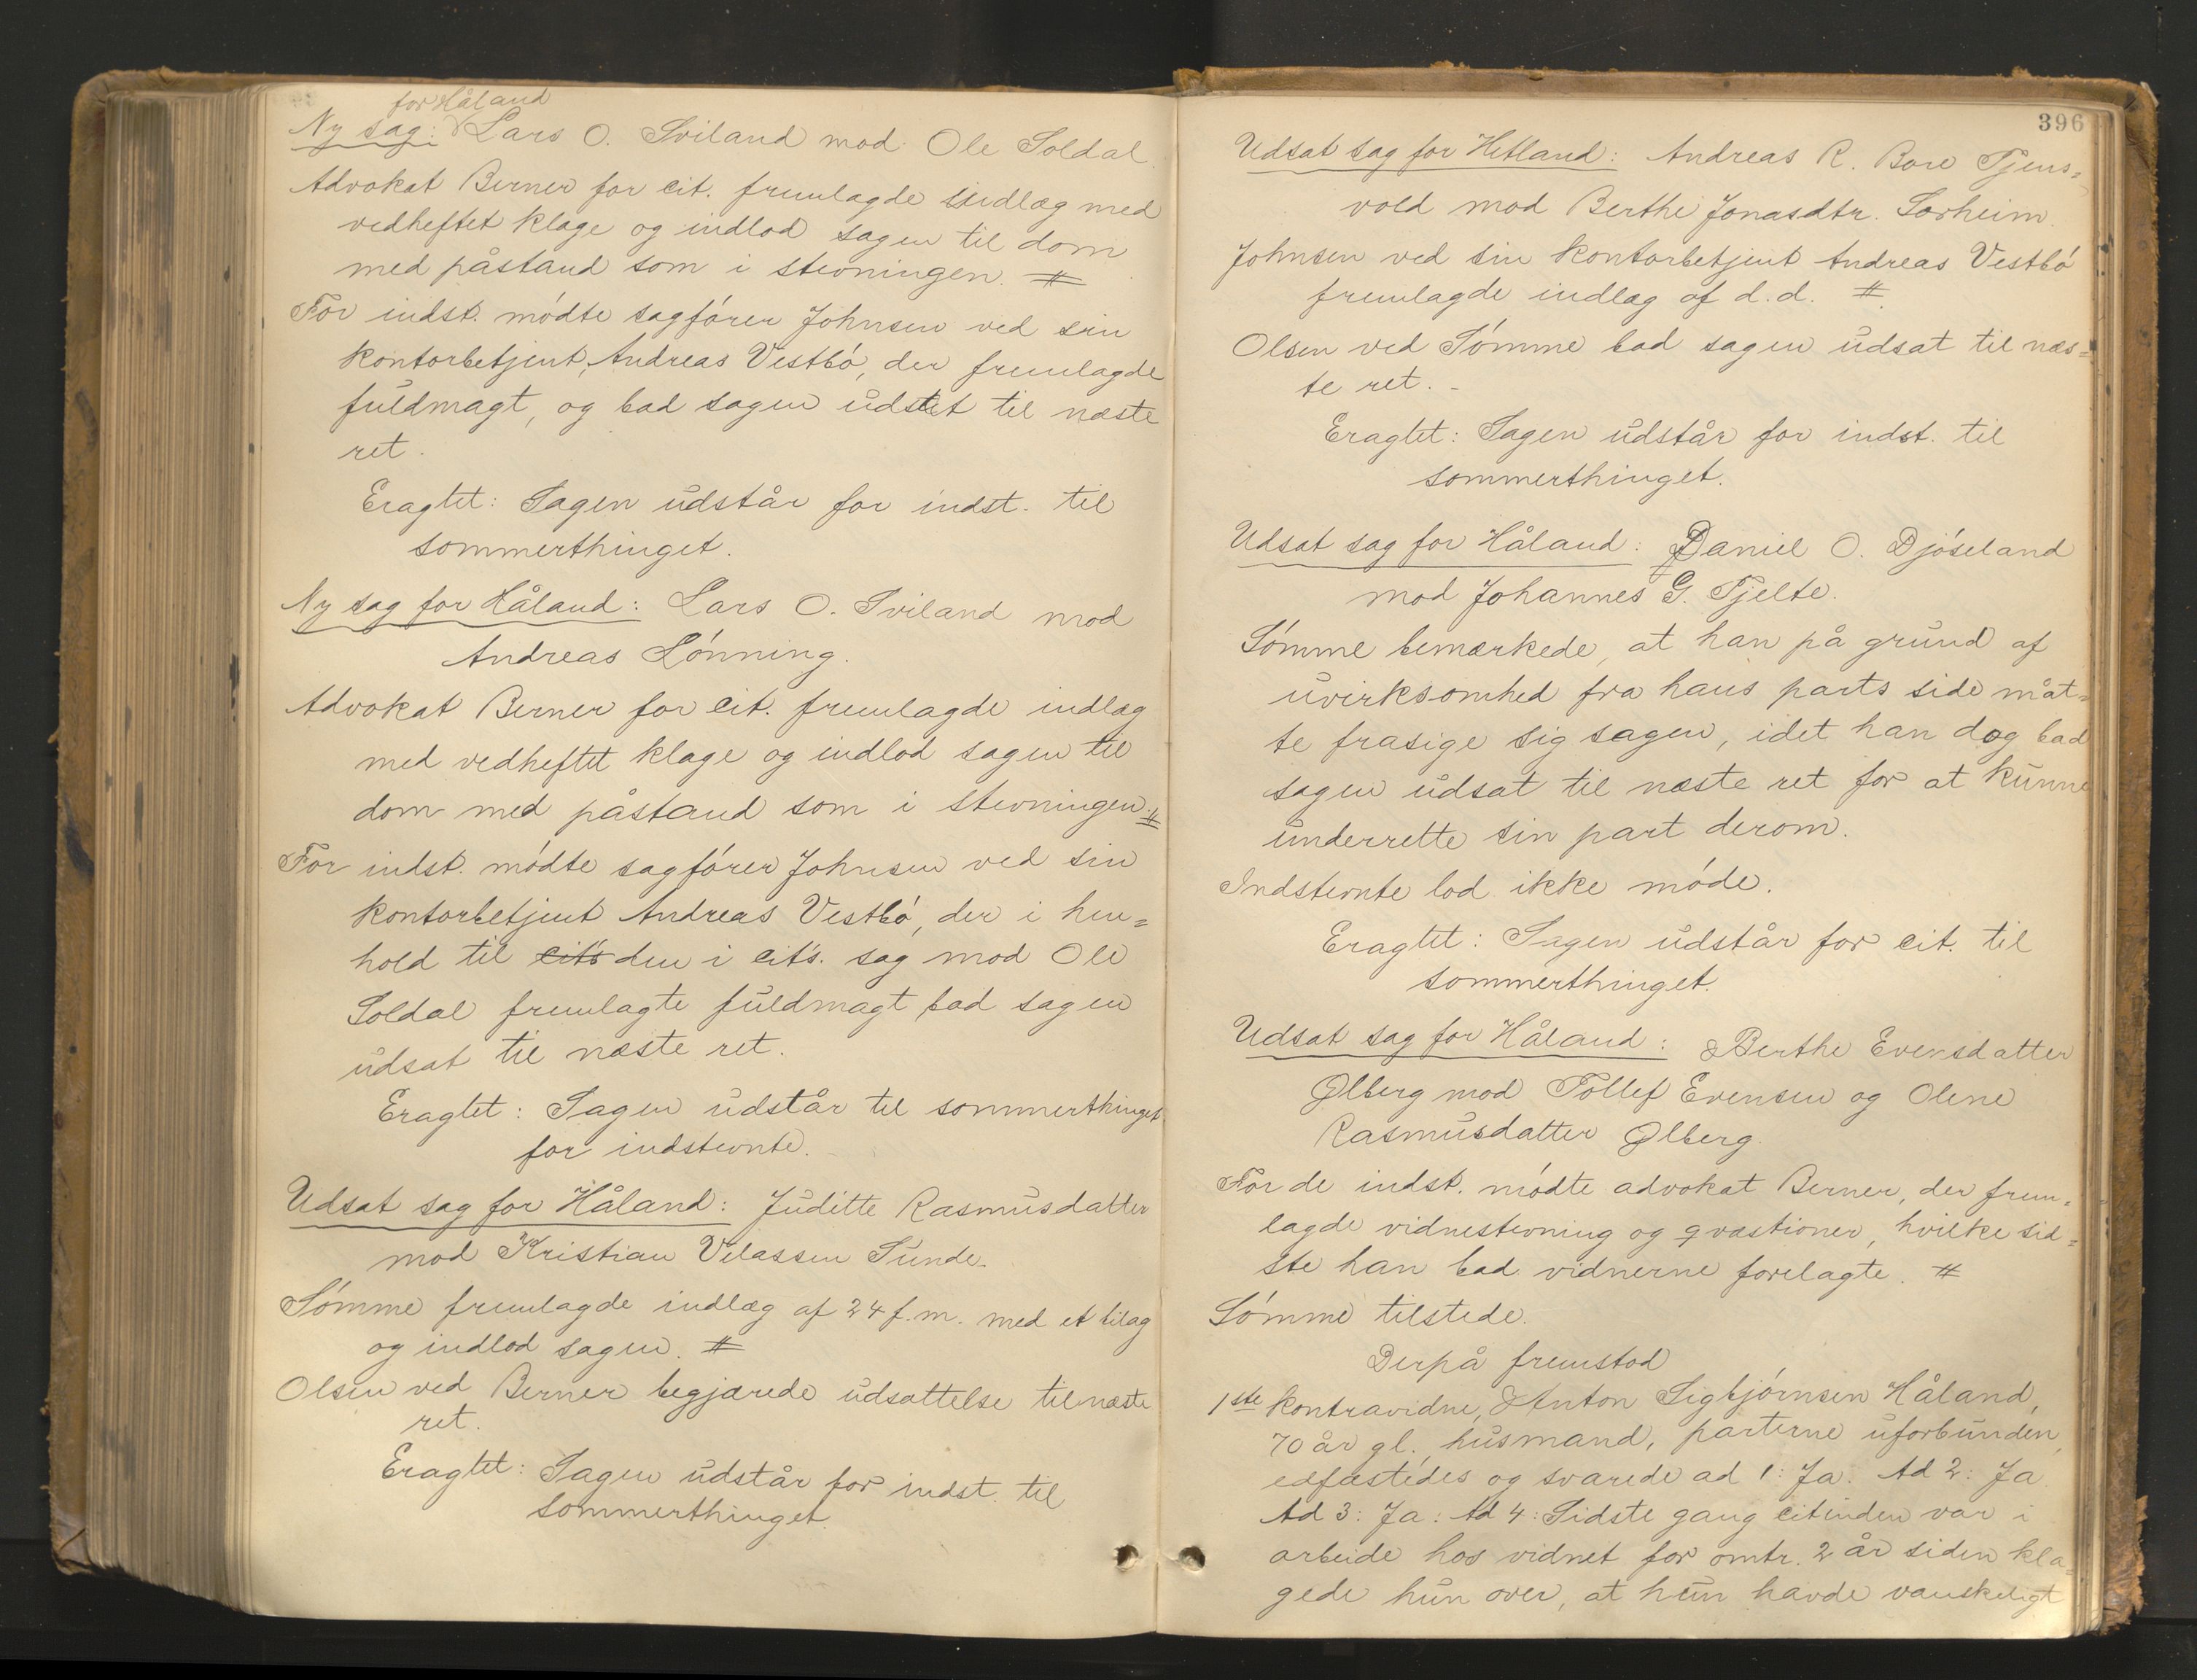 for Håland
Ny sag: Lars O. Sviland mod Ole Soldal.
Advokat Berner for cit. fremlagde indlæg med
vedheftet klage og indlod sagen til dom
med påstand som i stevningen. #
For indst. mødte sagfører Johnsen ved sin
kontorbetjent, Andreas Vestbø, der fremlagde
fuldmagt, og bad sagen udsat til næste
ret.
Eragtet: Sagen udstår for indst. til
sommerthinget.
Ny sag for Håland: Lars O. Sviland mod
Andreas Lønning.
Advokat Berner for cit. fremlagde indlæg
med vedheftet klage og indlod sagen til
dom med påstand som i stevningen. #
For indst. mødte sagfører Johnsen ved sin
kontorbetjent Andreas Vestbø, der i hen=
hold til cit's den i cit's. sag mod Ole
Soldal fremlagte fuldmagt bad sagen
udsat til næste ret.
Eragtet: Sagen udstår til sommerthinget
for indstevnte.
Udsat sag for Håland: Juditte Rasmusdatter
mod Kristian Velassen Sunde.
Sømme fremlagde indlæg af 24 f.m. med et bilag
og indlod sagen. #
Olsen ved Berner begjærede udsættelse til næste
ret.
Eragtet: Sagen udstår for indst. til
sommerthinget.
396
Udsat sag for Hetland: Andreas R. Bore Tjens=
vold mod Berthe Jonasdtr. Sørheim.
Johnsen ved sin kontorbetjent Andreas Vestbø
fremlagde indlæg af d.d. #
Olsen ved Sømme bad sagen udsat til næs=
te ret. -
Eragtet: Sagen udstår for indst. til
sommerthinget.
Udsat sag for Håland: Daniel O. Djøseland
mod Johannes G. Tjelte.
Sømme bemærkede, at han på grund af
uvirksomhed fra hans parts side måt=
te frasige sig sagen, idet han dog bad
sagen udsat til næste ret for at kunne
underrette sin part derom.
Indstevnte lod ikke møde.
Eragtet: Sagen udstår for cit. til
sommerthinget.
Udsat sag for Håland: Berthe Evensdatter
Ølberg mod Tollef Evensen og Olene
Rasmusdatter Ølberg.
For de indst. mødte advokat Berner, der frem=
lagde vidnestevning og qvæstioner, hvilke sid=
ste han bad vidnerne forelagte. #
Sømme tilstede.
Derpå fremstod
1ste kontravidne, Anton Sigbjørnsen Håland,
70 år gl. husmand, parterne uforbunden,
edfæstedes og svarede ad 1: Ja. Ad 2: Ja.
Ad 3: Ja: Ad 4: Sidste gang citinden var i
arbeide hos vidnet for omtr. 2 år siden kla=
gede hun over, at hun havde vanskeligt